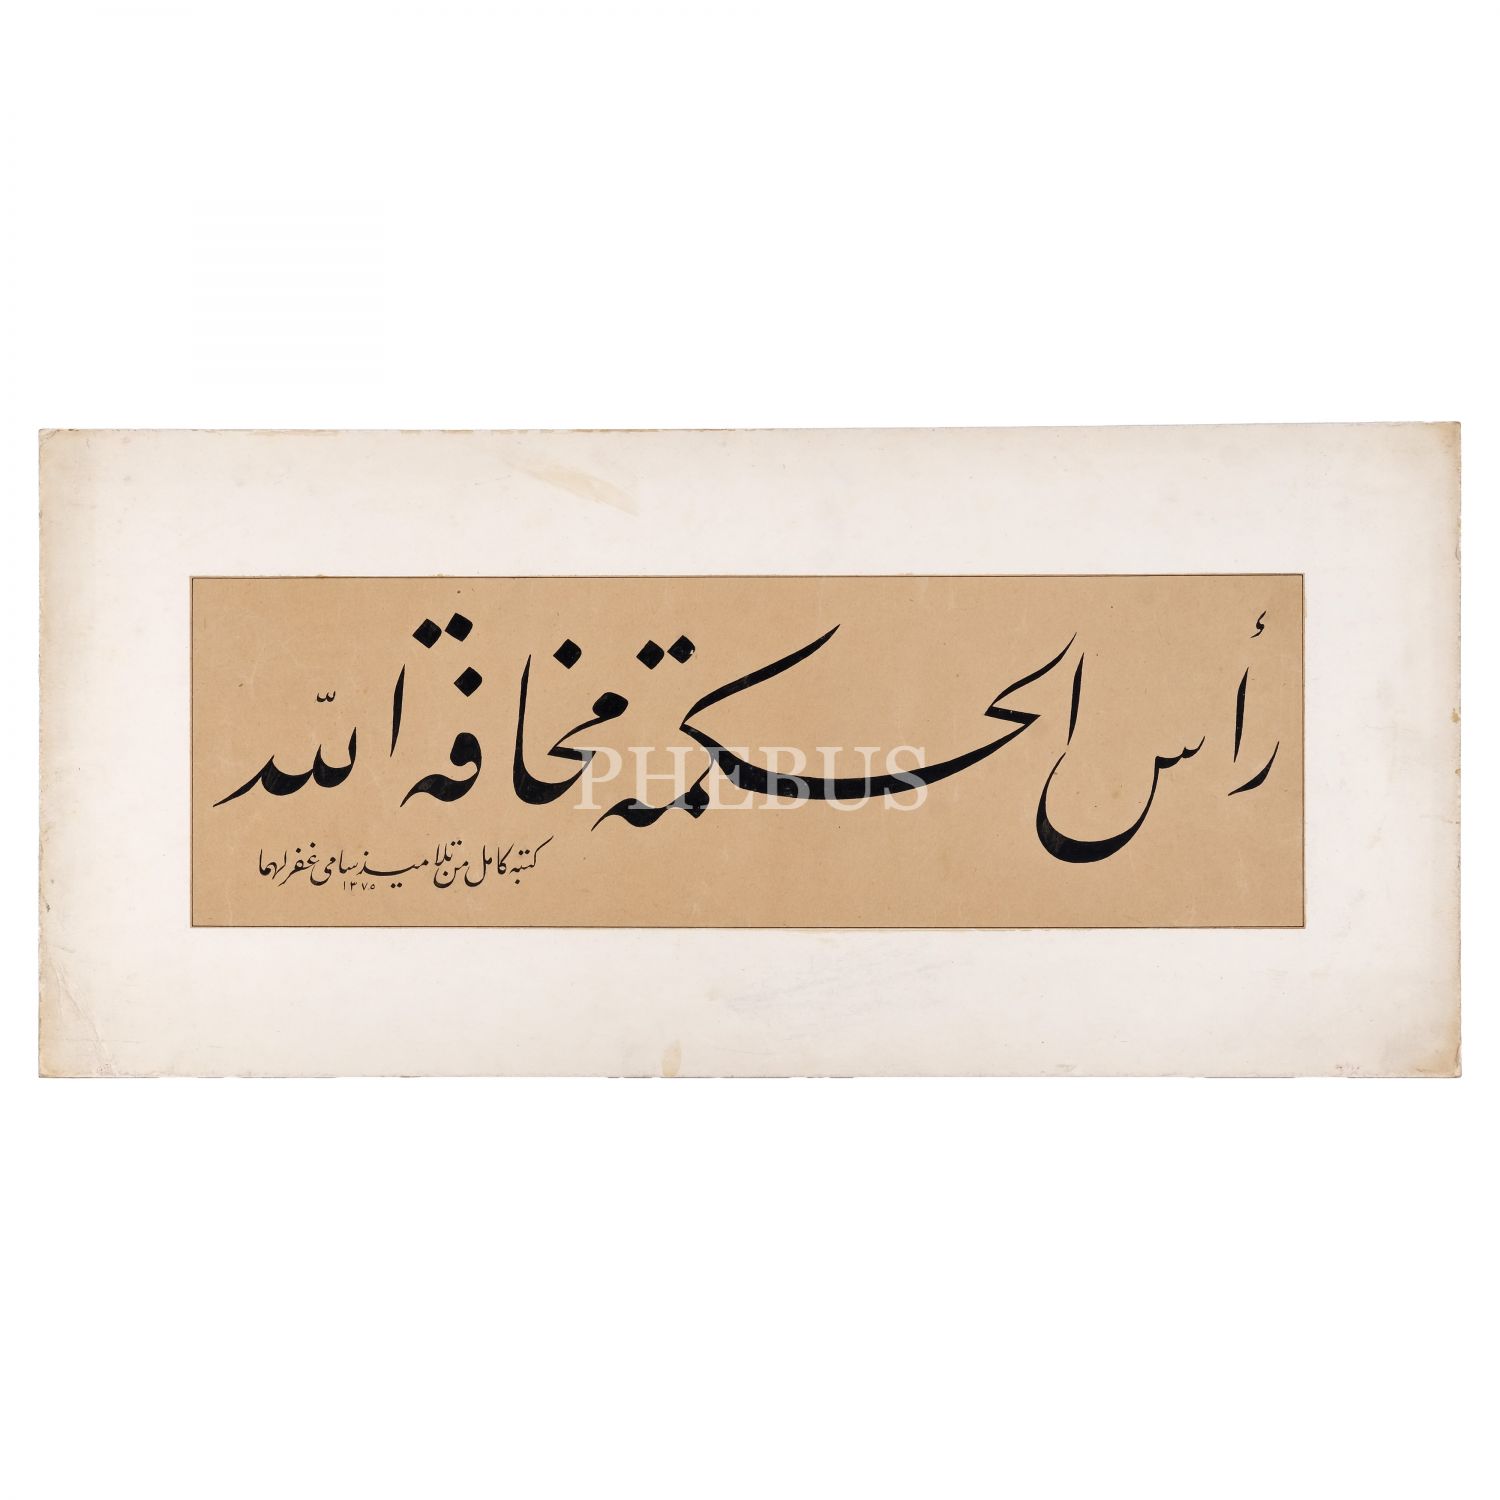 رأس الحكمة مخافة الله
PHEBUS
كتبه كامل من تلاميذ سامى غفر لهما
١٣٧٥